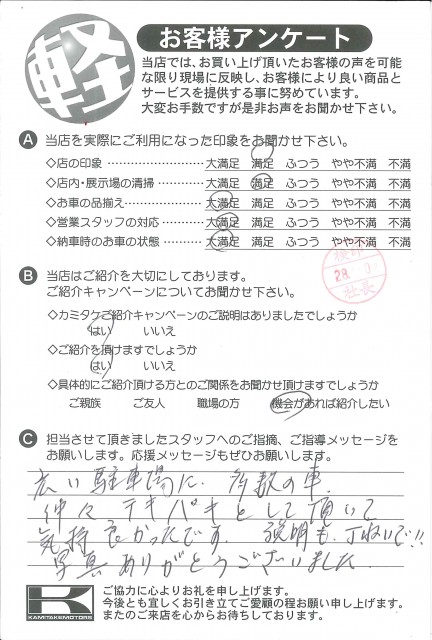 軽
お客様アンケート
当店では、お買い上げ頂いたお客様の声を可能
な限り現場に反映し、お客様により良い商品と
サービスを提供する事に努めています。
大変お手数ですが是非お声をお聞かせ下さい。
A 当店を実際にご利用になった印象をお聞かせ下さい。
◇店の印象 ………………… 大満足 満足 ふつう やや不満 不満
◇店内・展示場の清掃 ………… 大満足 満足 ふつう やや不満 不満
◇お車の品揃え ……………… 大満足 満足 ふつう やや不満 不満
◇営業スタッフの対応 ………… 大満足 満足 ふつう やや不満 不満
◇納車時のお車の状態 ………… 大満足 満足 ふつう やや不満 不満
28
社長
B 当店はご紹介を大切にしております。
ご紹介キャンペーンについてお聞かせ下さい。
◇カミタケご紹介キャンペーンのご説明はありましたでしょうか
はい いいえ
◇ご紹介を頂けますでしょうか
はい いいえ
◇具体的にご紹介頂ける方とのご関係をお聞かせ頂けますでしょうか
ご親族 ご友人 職場の方 機会があれば紹介したい
C 担当させて頂きましたスタッフへのご指摘、ご指導メッセージを
お願いします。応援メッセージもぜひお願いします。
広い駐車場に、多数の車、
仲々テキパキとして頂いて
気持良かったです。説明も、丁ねいで!!
写真ありがとうございました。
KAMITAKEMOTORS
ご協力に心よりお礼を申し上げます。
今後とも宜しくお引き立てご愛顧の程お願い申し上げます。
またのご来店を心からお待ちしております。